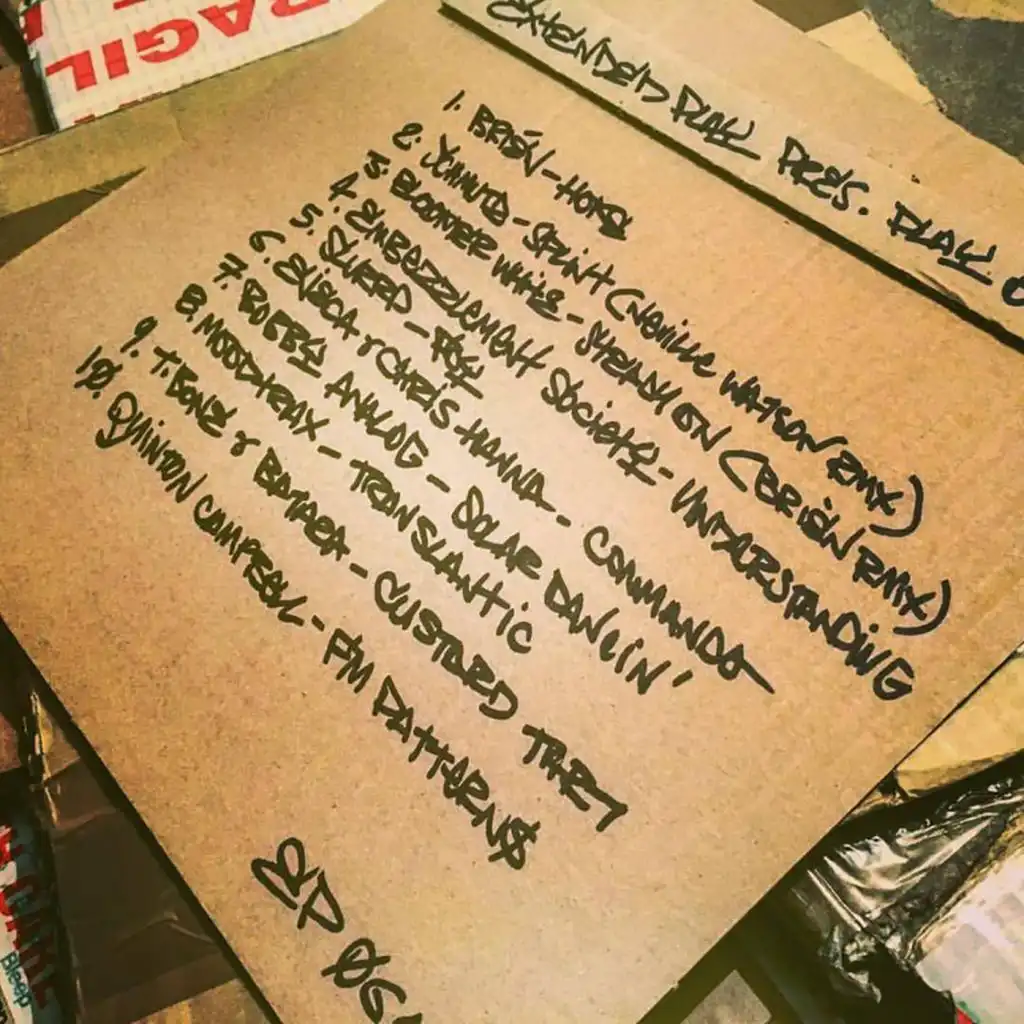 FRAGIL
EXTENDED PLAY PRES. PLAY
1. BRIÉN - HOKSI
2. SCHMUTD - SPLINT (NEVILLE WATSON RMX)
3. BLOOMER WHITE - STEADY ON (BRIÉN RMX)
4. EMBEZZLEMENT SOCIETY - UNDERSTANDING
5. SLVERD - FKY
6. & CHRIS HANNA - COMMANDO
7. BOBBY ANALOG - SOLAR DANCIN'
8. MOODTRAX - TRANSLANTIC
9. T. BONE & BATABA - CUSTARD TART
10. QUINTON CAMPBELL - FM PATTERNS
CARE
Bleep